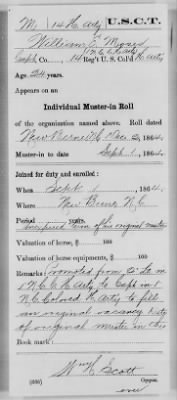 M | 14 H Arty | U.S.C.T.
William A.
Capt, Co. , 14 Reg't U.S. Col'd H. Arty
Age 24 years.
Appears on an
Individual Muster-in Roll
of the organization named above. Roll dated
New Berne N.C. Dec 2, 1864.
Muster-in to date Sept 1, 1864.
Joined for duty and enrolled:
When Sept 1, 1864.
Where New Berne N.C.
Period years.
unexpired term of his original muster
Valuation of horse, $ 100
Valuation of horse equipments, $ 100
Remarks: Promoted from 2d Lt in
1 N.C.C. H. Arty to Capt in 1
N.C. Colored H. Arty to fill
an original vacancy
of original muster in
Book mark:
Wm E Scott
(656) Copyist.
over